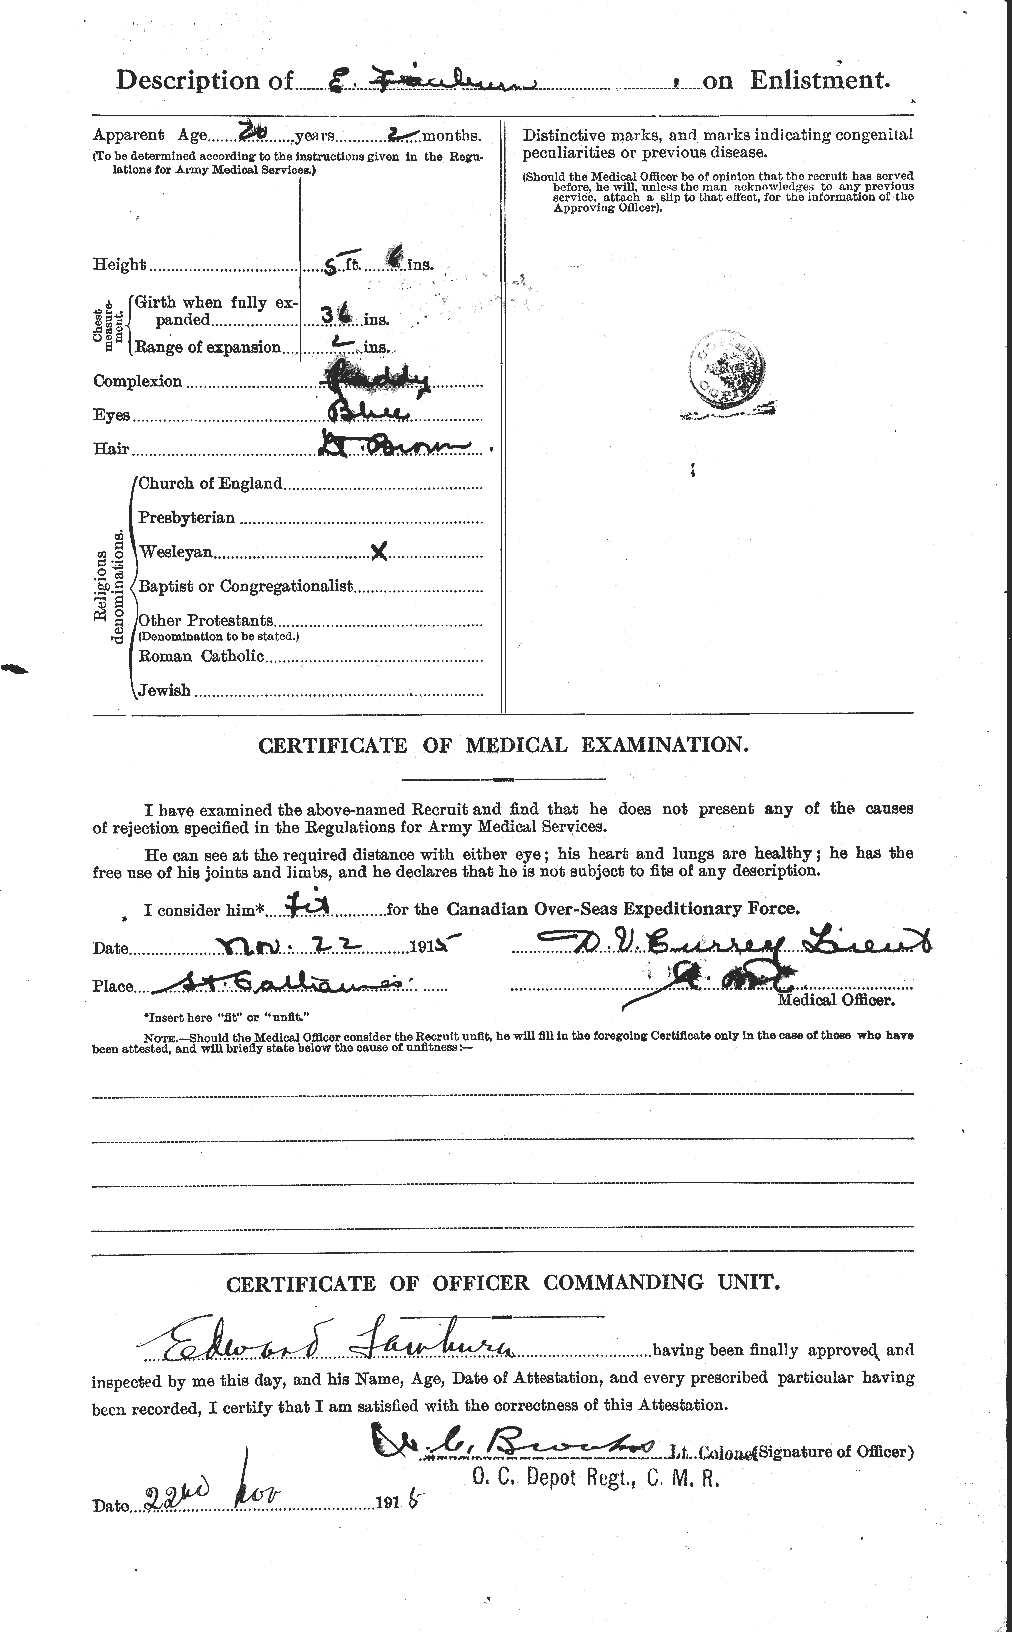 Description of E. on Enlistment.
Apparent Age 20 years 2 months.
(To be determined according to the instructions given in the Regu-
lations for Army Medical Services.)
Height 5 ft. 6 ins.
Chest measurement.
Girth when fully ex-
panded 36 ins.
Range of expansion 2 ins.
Complexion Ruddy
Eyes Blue
Hair Brown
Religious denominations.
Church of England
Presbyterian
Wesleyan X
Baptist or Congregationalist
Other Protestants
(Denomination to be stated.)
Roman Catholic
Jewish
Distinctive marks, and marks indicating congenital
peculiarities or previous disease.
(Should the Medical Officer be of opinion that the recruit has served
before, he will, unless the man acknowledges to any previous
service, attach a slip to that effect, for the information of the
Approving Officer).
CERTIFICATE OF MEDICAL EXAMINATION.
I have examined the above-named Recruit and find that he does not present any of the causes
of rejection specified in the Regulations for Army Medical Services.
He can see at the required distance with either eye; his heart and lungs are healthy; he has the
free use of his joints and limbs, and he declares that he is not subject to fits of any description.
I consider him* fit for the Canadian Over-Seas Expeditionary Force.
Date Nov. 22 1915 D. V. Currey Lieut
Place St. Catharines
Medical Officer.
*Insert here "fit" or "unfit."
NOTE.—Should the Medical Officer consider the Recruit unfit, he will fill in the foregoing Certificate only in the case of those who have
been attested, and will briefly state below the cause of unfitness:—
CERTIFICATE OF OFFICER COMMANDING UNIT.
Edward Fawburn having been finally approved and
inspected by me this day, and his Name, Age, Date of Attestation, and every prescribed particular having
been recorded, I certify that I am satisfied with the correctness of this Attestation.
C. Brooks Lt. Colonel (Signature of Officer)
O. C. Depot Regt., C. M. R.
Date 22nd Nov 1915